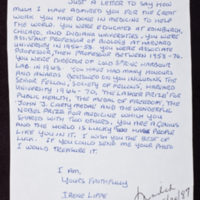 JUST A LETTER TO SAY HOW
MUCH I HAVE ADMIRED YOU FOR THE GREAT
WORK YOU HAVE DONE IN MEDICINE TO HELP
THE WORLD. YOU WERE EDUCATED AT EDINBURGH,
CHICAGO, AND INDIANA UNIVERSITIES. YOU WERE
ASSISTANT PROFESSOR OF BIOLOGY AT HARVARD
UNIVERSITY IN 1956-58. YOU WERE ASSOCIATE
PROFESSOR THEN PROFESSOR BETWEEN 1958-76.
YOU WERE DIRECTOR OF COLD SPRING HARBOUR
LAB IN 1968. YOU HAVE HAD MANY HONOURS
AND AWARDS BESTOWED ON YOU INCLUDING THE
SENIOR FELLOW, SOCIETY OF FELLOWS, HARVARD
UNIVERSITY 1964-70, THE LASKER PRIZE FOR
PUBLIC HEALTH, THE MEDAL OF FREEDOM, THE
JOHN J. CARTY MEDAL AND THE WONDERFUL
NOBEL PRIZE FOR MEDICINE WHICH YOU
SHARED WITH TWO OTHERS. YOU ARE A GENIUS
AND THE WORLD IS LUCKY TOO HAVE PEOPLE
LIKE YOU IN IT. I WISH YOU THE BEST OF
LUCK. IF YOU COULD SEND ME YOUR PHOTO
I WOULD TREASURE IT.
I AM,
YOURS FAITHFULLY
IRENE